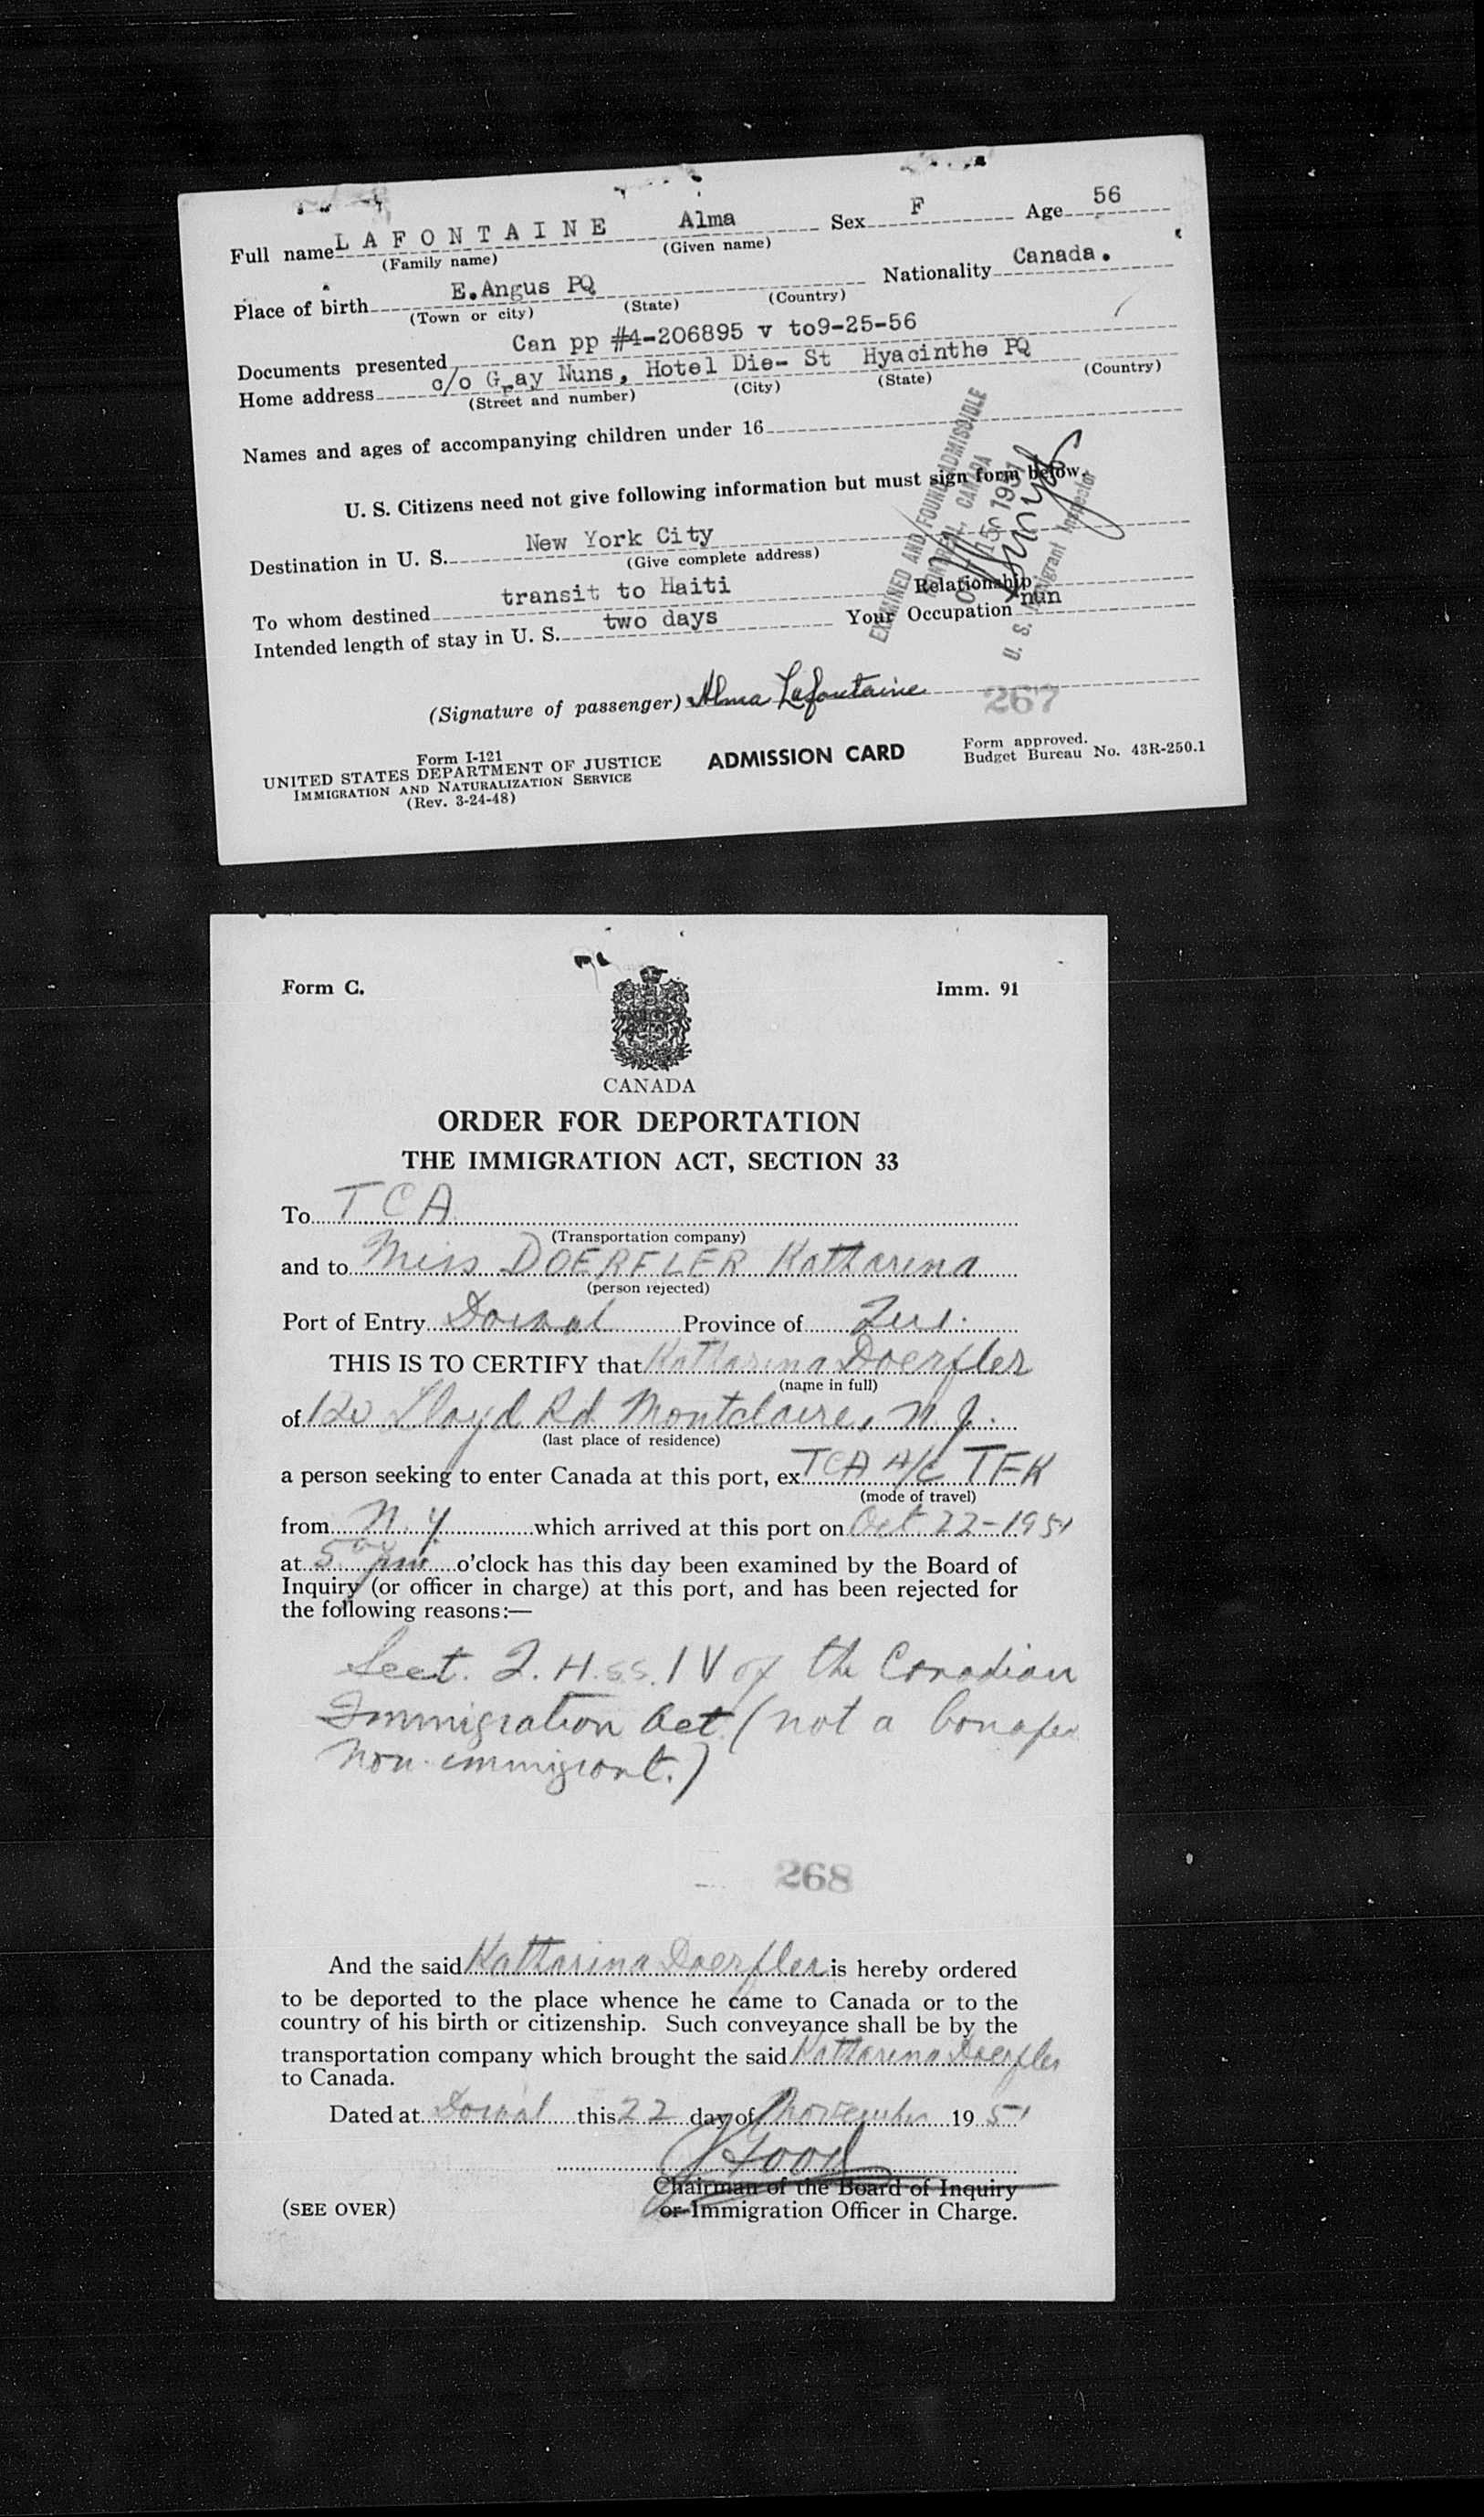 Full name L A F O N T A I N E Alma Sex F Age 56
(Family name) (Given name)
Place of birth E.Angus PQ Nationality Canada.
(Town or city) (State) (Country)
Documents presented Can pp #4-206895 v to9-25-56
Home address c/o Gray Nuns, Hotel Die- St Hyacinthe PQ
(Street and number) (City) (State) (Country)
Names and ages of accompanying children under 16
U. S. Citizens need not give following information but must sign form below.
Destination in U. S. New York City
(Give complete address)
To whom destined transit to Haiti Relationship
Intended length of stay in U. S. two days Your Occupation nun
EXAMINED AND FOUND ADMISSIBLE
MONTREAL, CANADA
OCT 15 1951
U. S. Immigrant Inspector
(Signature of passenger) Alma Lafontaine
267
Form I-121
UNITED STATES DEPARTMENT OF JUSTICE
IMMIGRATION AND NATURALIZATION SERVICE
(Rev. 3-24-48)
ADMISSION CARD
Form approved.
Budget Bureau No. 43R-250.1
Form C. Imm. 91
CANADA
ORDER FOR DEPORTATION
THE IMMIGRATION ACT, SECTION 33
To T C A
(Transportation company)
and to Miss DOERFLER Katharina
(person rejected)
Port of Entry Dorval Province of Que.
THIS IS TO CERTIFY that Katharina Doerfler
(name in full)
of 120 Lloyd Rd Montclaire, N.J.
(last place of residence)
a person seeking to enter Canada at this port, ex TCA A/C TFK
(mode of travel)
from N.Y. which arrived at this port on Oct. 22-1951
at 5 pm o'clock has this day been examined by the Board of
Inquiry (or officer in charge) at this port, and has been rejected for
the following reasons:—
Sect. 2. H. s.s. IV of the Canadian
Immigration Act (not a bonafide
non-immigrant.)
268
And the said Katharina Doerfler is hereby ordered
to be deported to the place whence he came to Canada or to the
country of his birth or citizenship. Such conveyance shall be by the
transportation company which brought the said Katharina Doerfler
to Canada.
Dated at Dorval this 22 day of November 1951
Chairman of the Board of Inquiry
(SEE OVER) or Immigration Officer in Charge.